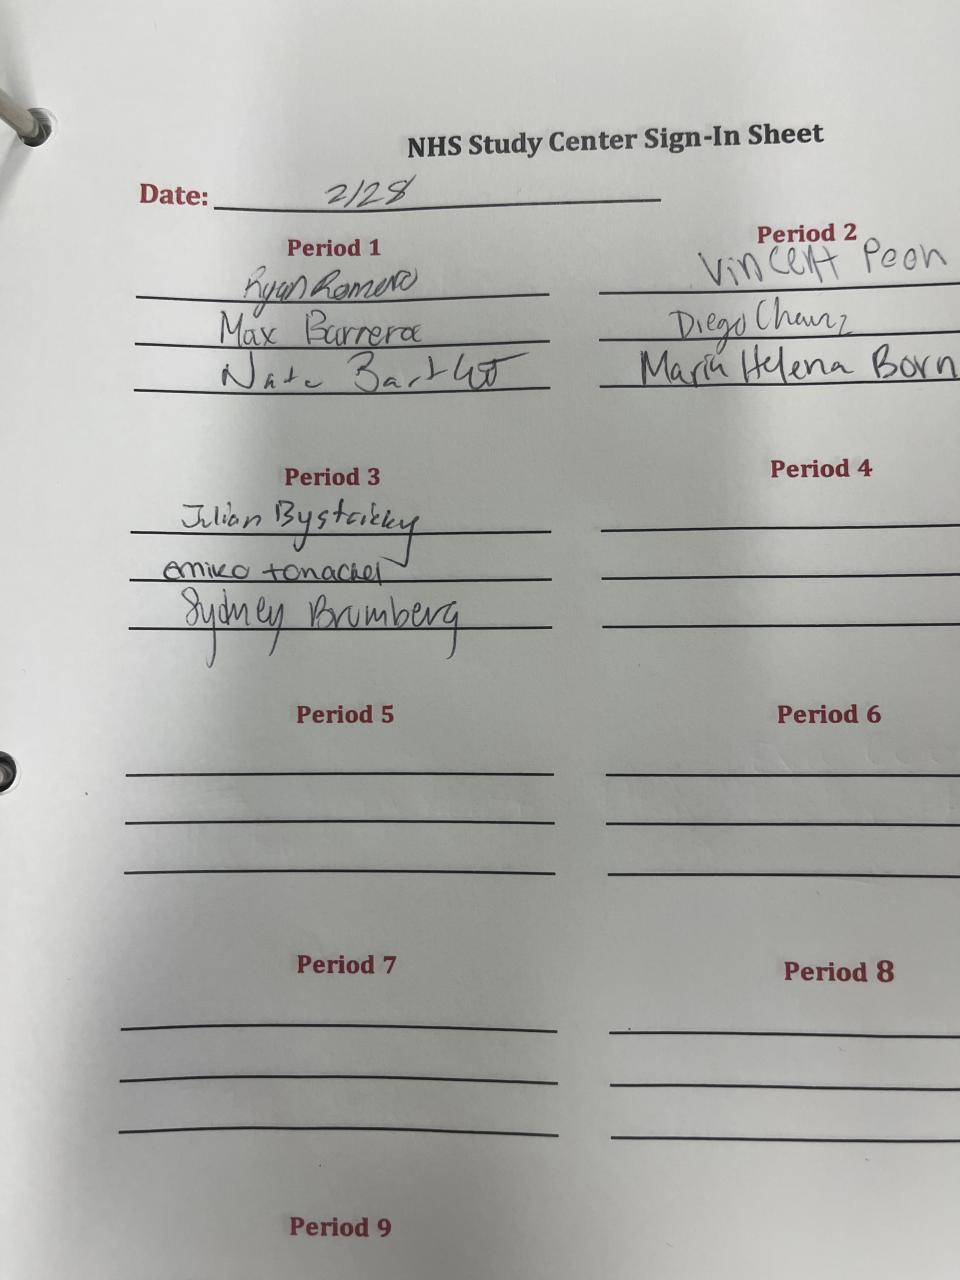 NHS Study Center Sign-In Sheet
Date: 2/28
Period 1
Ryan Romero
Max Barrera
Nate
Period 2
Vincent Peon
Diego
Maria Helena Born
Period 3
Julian Bystricky
emiko tonachel
Sydney Brumberg
Period 4
Period 5
Period 6
Period 7
Period 8
Period 9